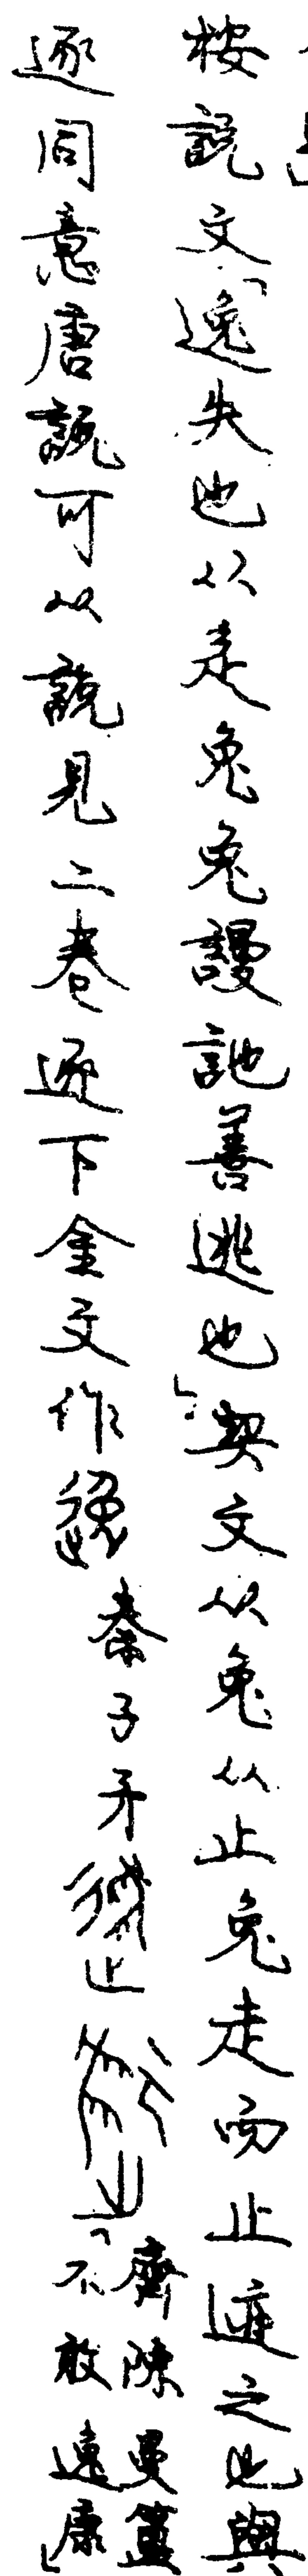 桉說文「逸失也从辵兔兔謾訑善逃也」契文从兔从止兔走而止之也與
逐同意唐說可从說見二卷逐下金文作逸
秦子矛
齊陳曼簠
「不敢逸康」